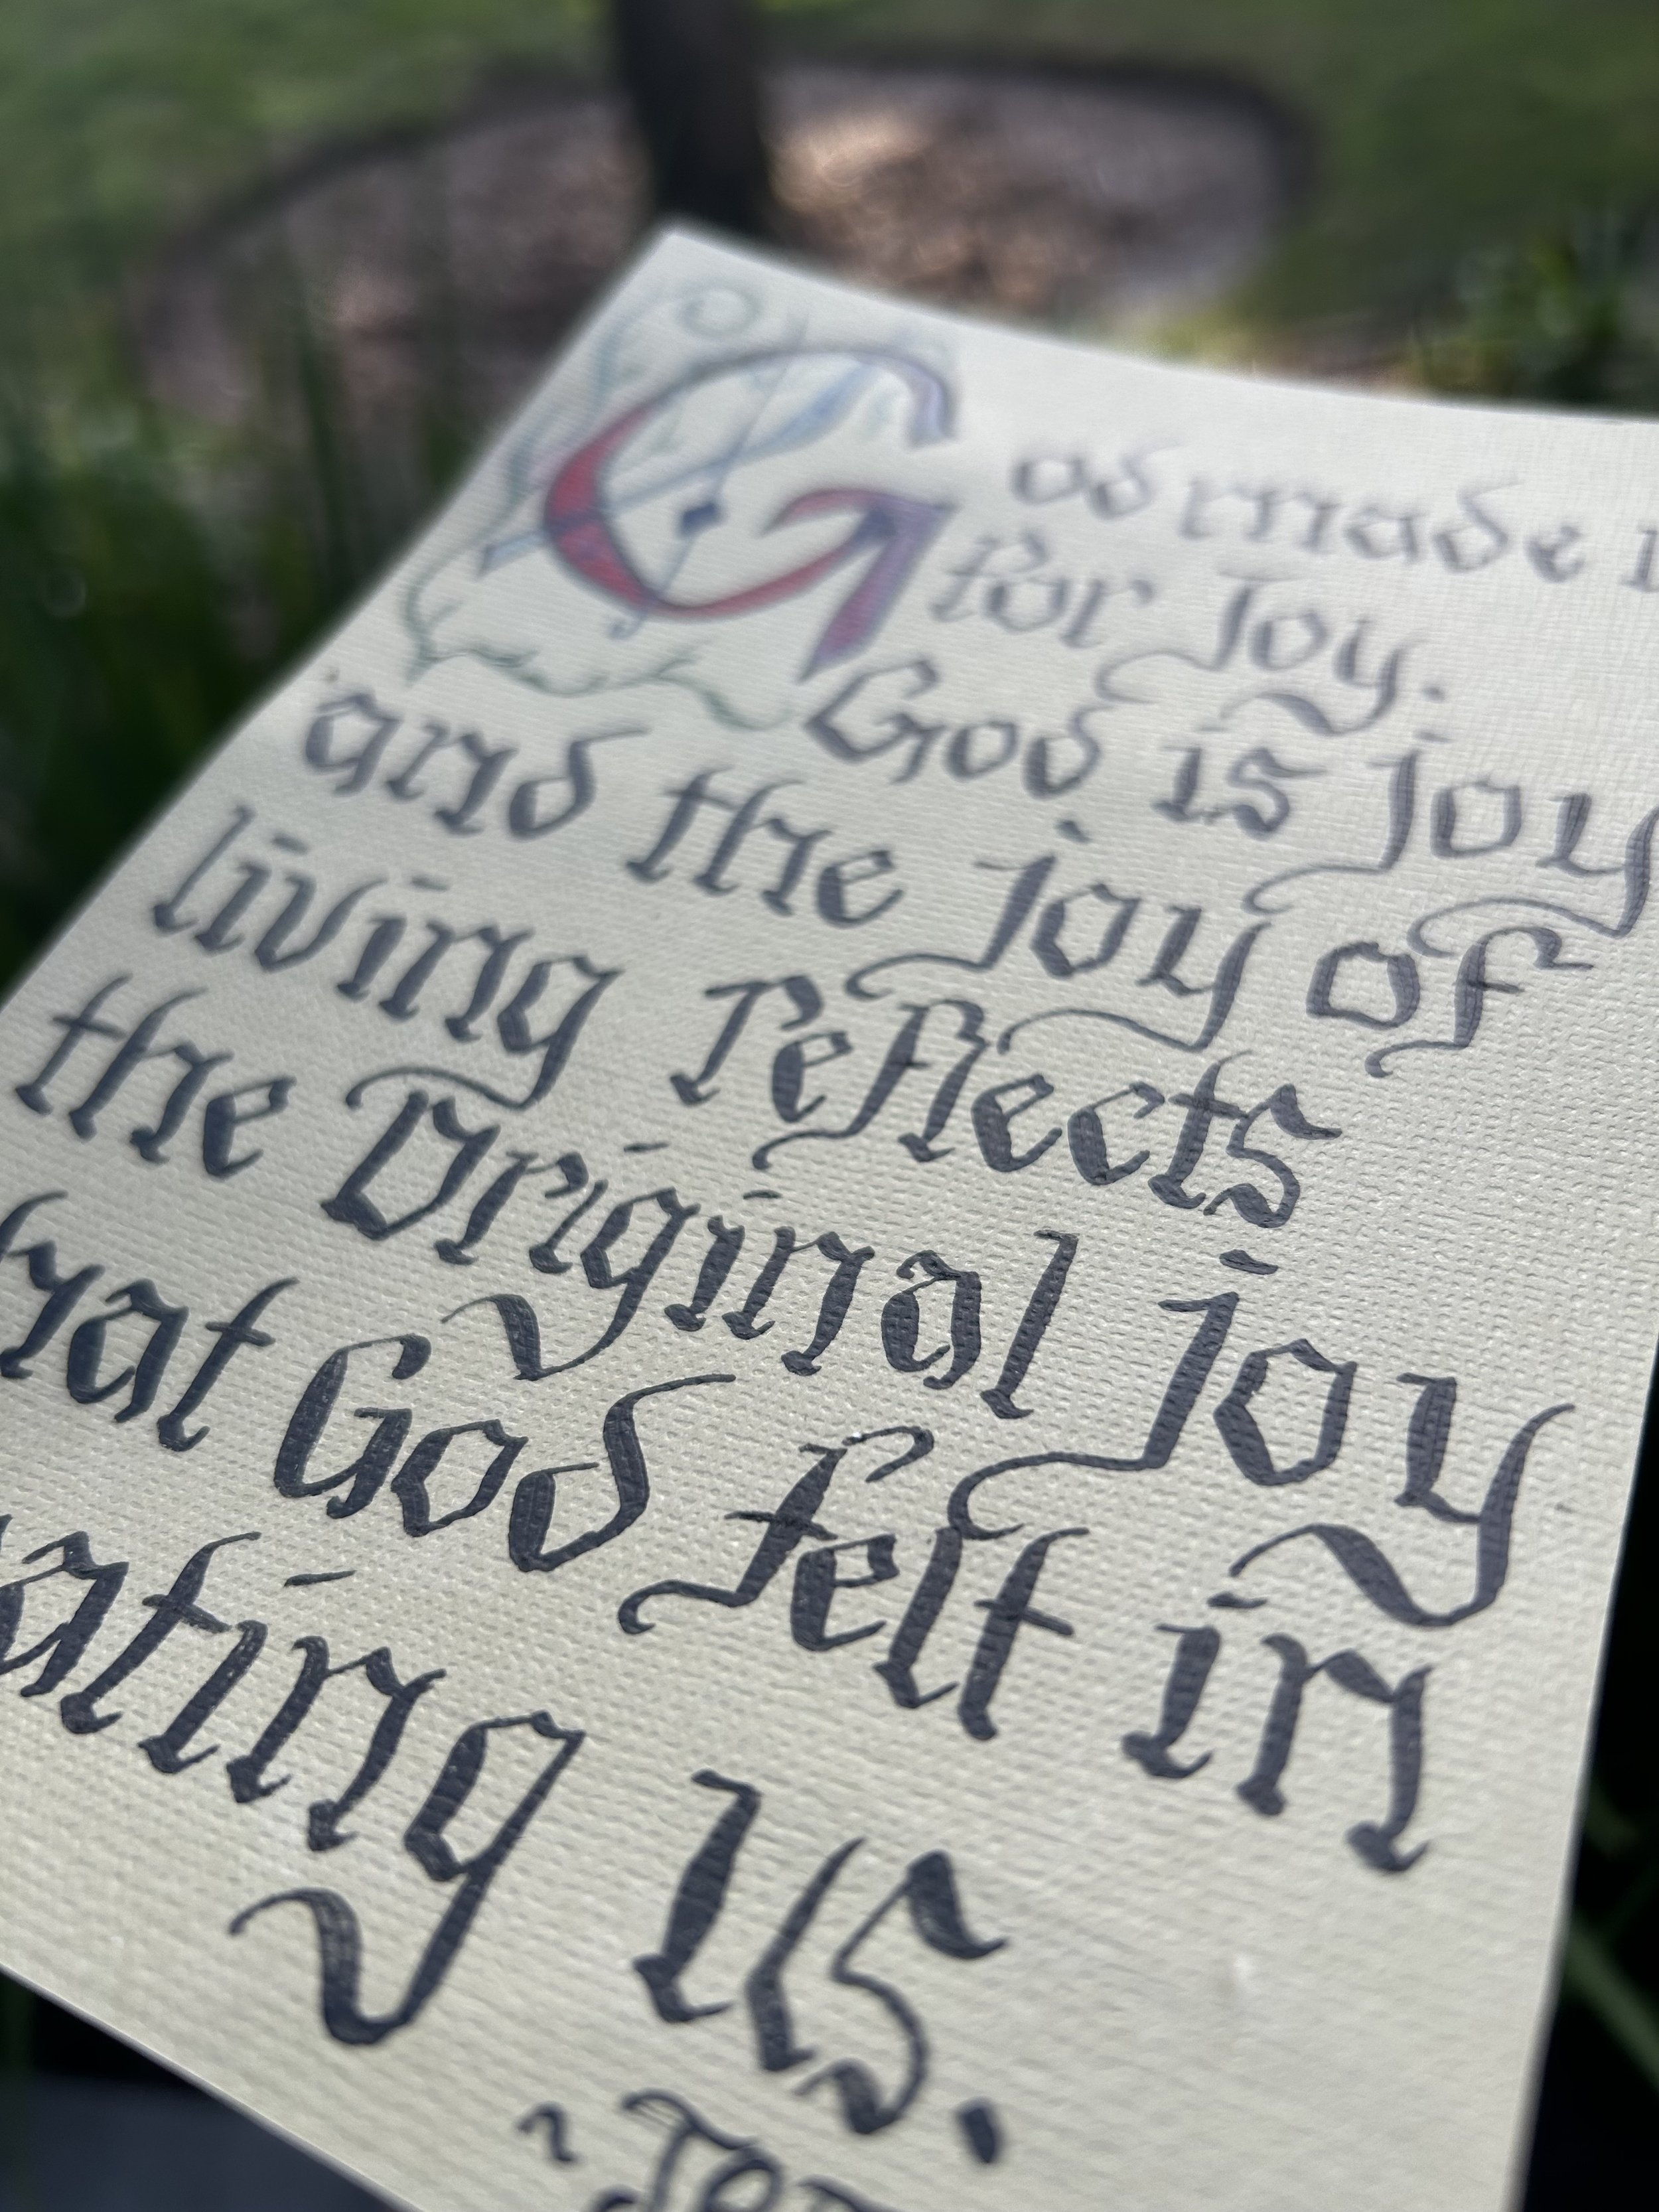 God made
for Joy.
God is joy
and the joy of
living reflects
the Original joy
that God felt in
us.